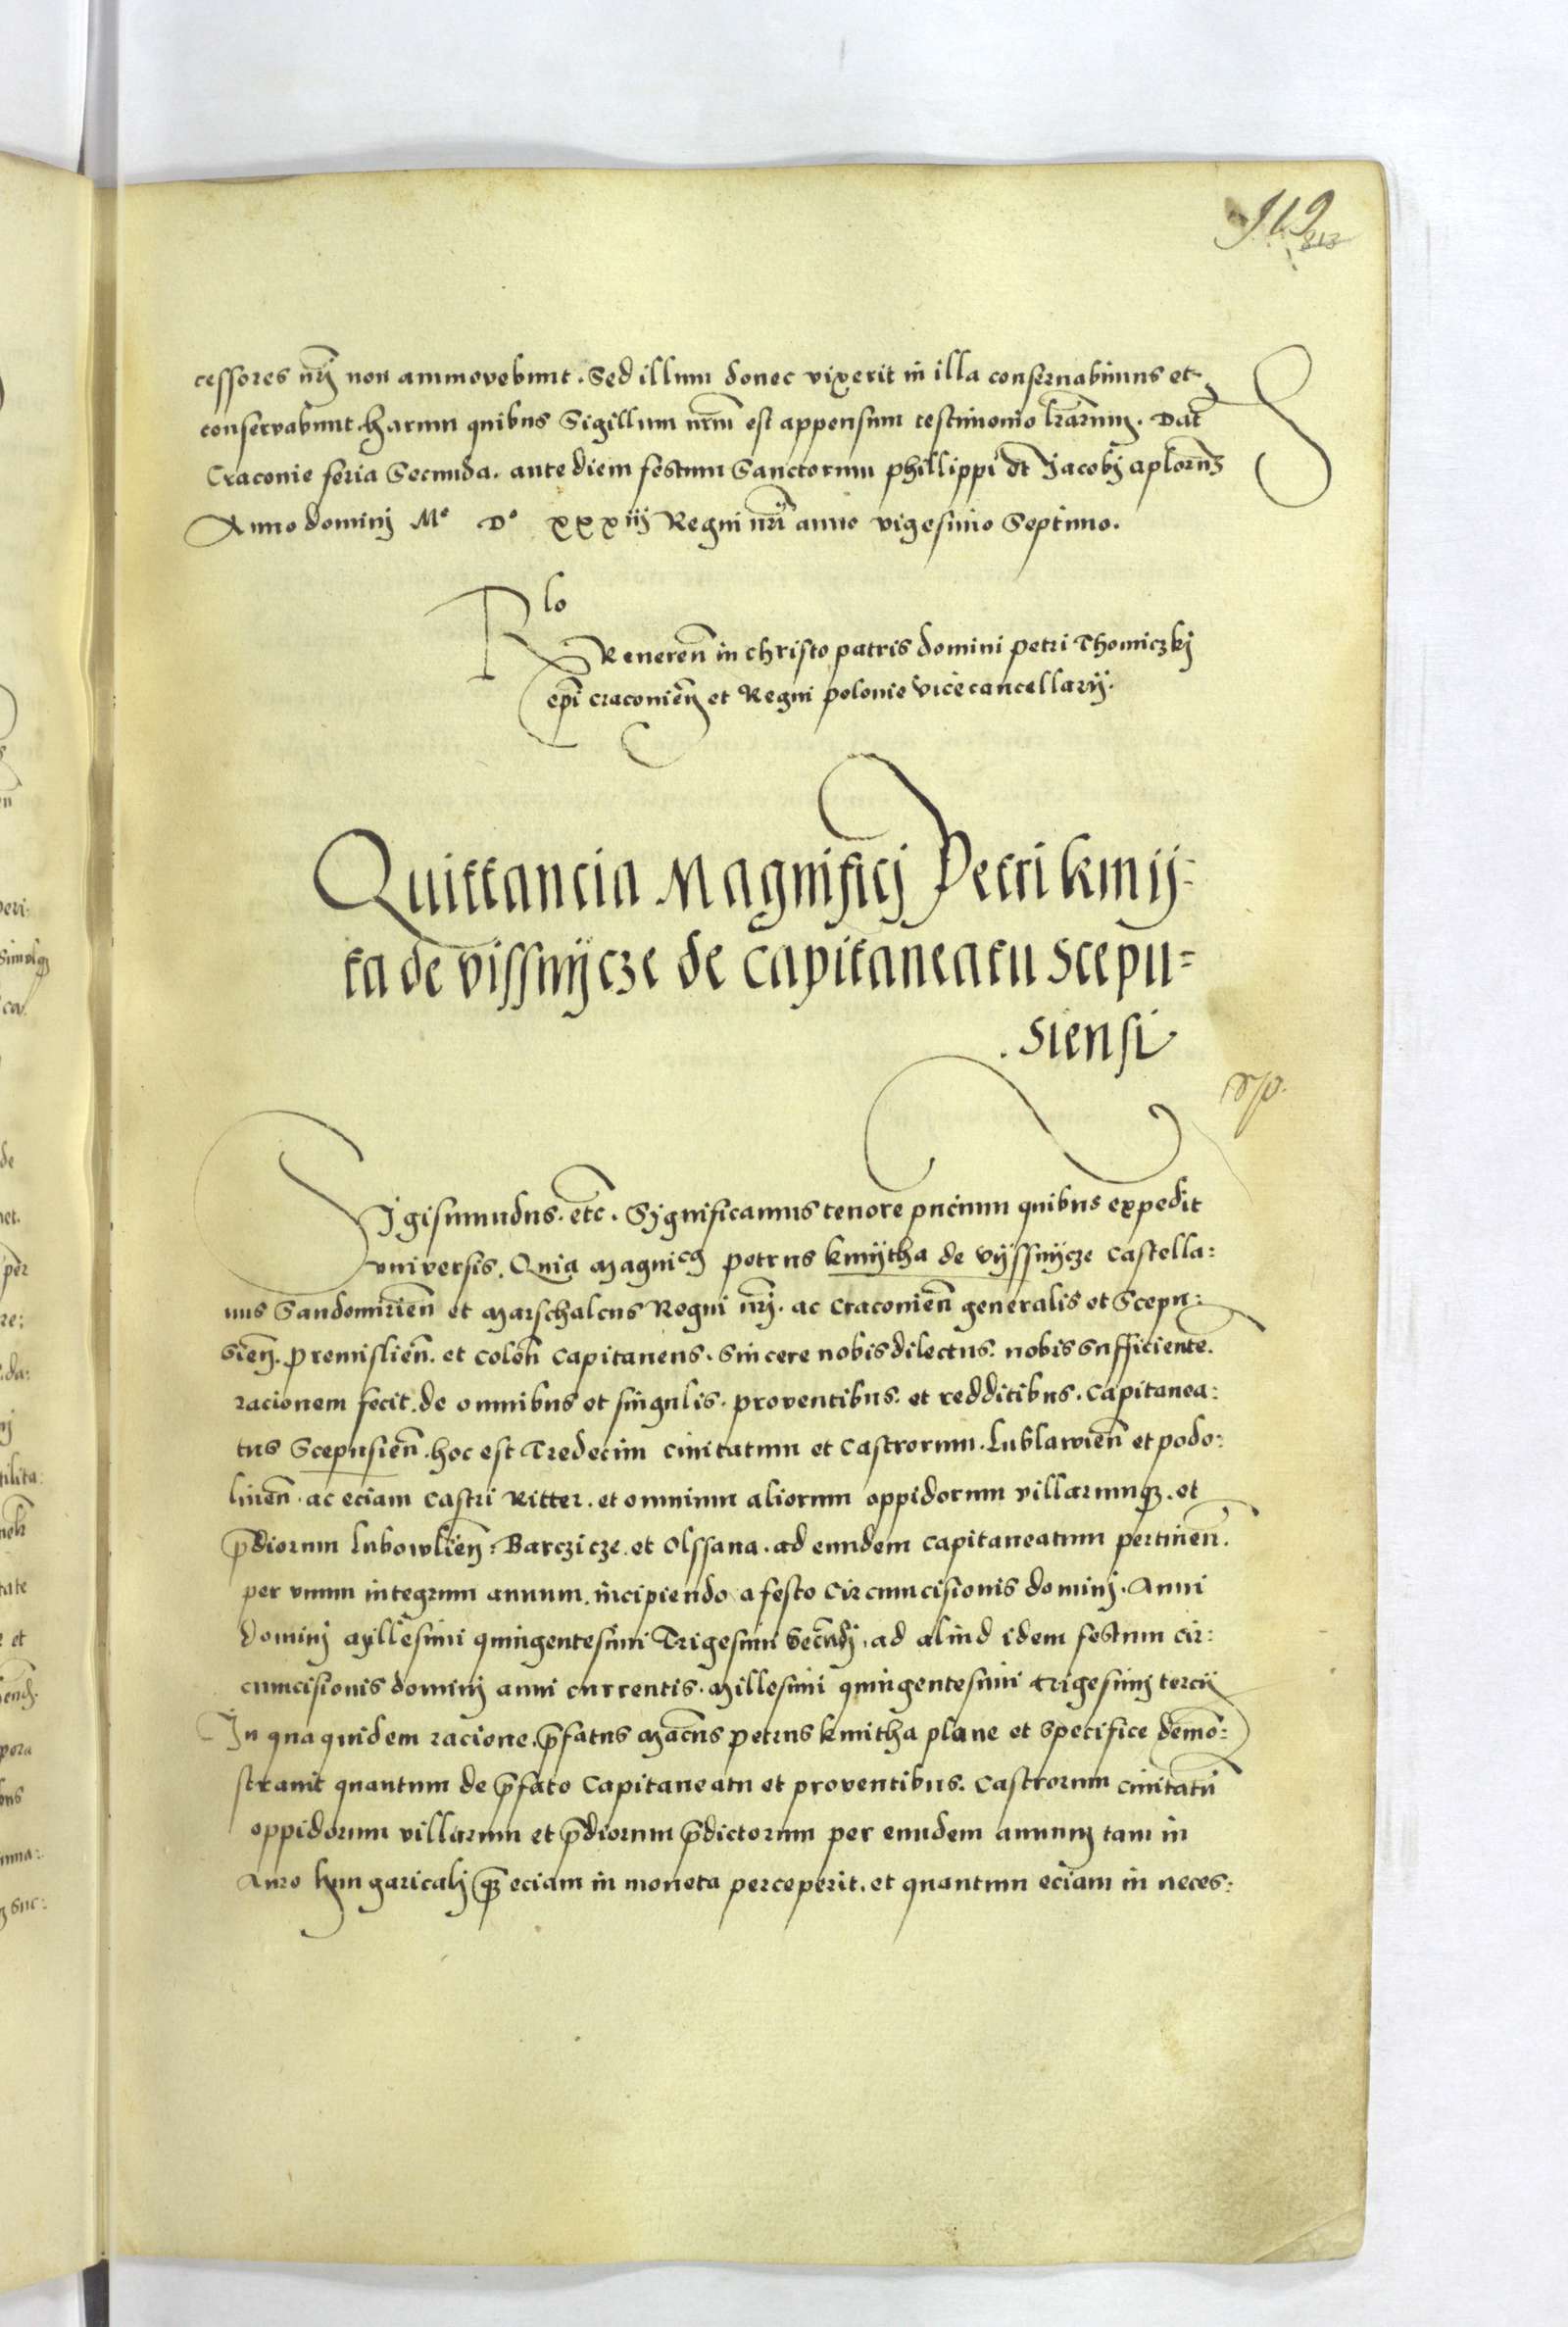 119
213
cessores nr̃j non ammovebunt. Sed illum donec vixerit in illa conservabimus et
conservabunt. harum quibus Sigillum nr̃m est appensum testimonio lr̃arum. Dat̃
Craconie feria Secunda. ante diem festum Sanctorum phillippi et Jacobj aplorũ
Anno dominj Mº Dº xxxiij Regni nr̃i anno vigesimo Septimo.
Rlo
Reveren̄ in christo patris domini petri Thomiczkj
ep̃i craconien̄ et Regni polonie vicecancellarij.
Quittancia Magnificj Petri kmij-
ta de vissnijcze de capitaneatu scepu=
siensi
Sigismundus. etc̃. Significamus tenore pñcium quibus expedit
vniversis. Quia magnicus petrus kmijtha de vijssnijcze castella:
nus Sandomirien̄ et marschalcus Regni nr̃j. ac Craconien̄ generalis et Scepu:
sien̄. premislien̄. et Colen̄ capitaneus. Sincere nobis dilectus. nobis sufficiente.
racionem fecit. de omnibus et singulis. proventibus. et redditibus. Capitanea:
tus Scepusien̄. hoc est Tredecim civitatum et Castrorum. Lublawien̄ et podo:
linen̄. ac eciam castri Ritter. et omnium aliorum oppidorum villarumqz. et
p̃diorum Lubowlien̄. Barczicze. et Olssana. ad eundem capitaneatum pertinen̄.
per vnum integrum annum. incipiendo a festo Circumcisionis dominj. Anni
dominj Millesimi quingentesimi Trigesimi secundj. ad aliud idem festum cir:
cumcisionis dominj anni currentis. Millesimi quingentesimi trigesimj tercij
In qua quidem racione. p̃fatus mac̃us petrus kmitha plane et specifice demõ:
stravit quantum de p̃fato Capitaneatu et proventibus. Castrorum civitatũ
oppidorum villarum et p̃diorum p̃dictorum per eundem annum tam in
Auro hungaricalj qz̃ eciam in moneta perceperit. et quantum eciam in neces: